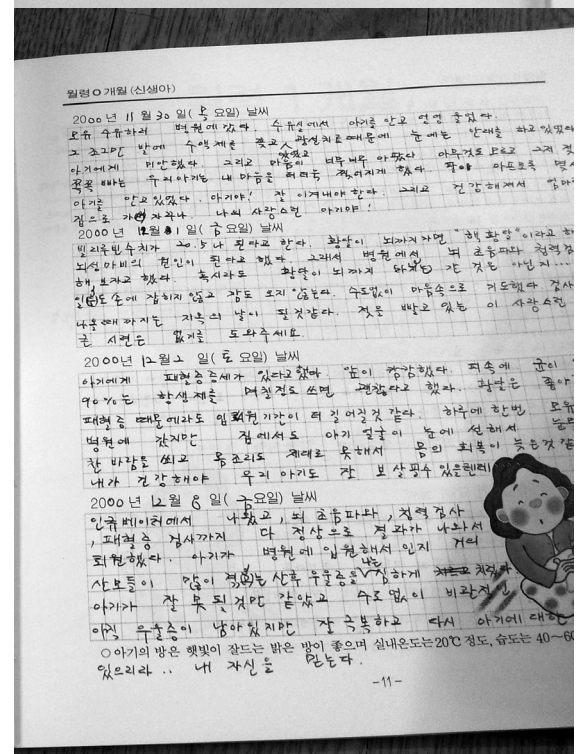 월령 0개월 (신생아)
2000년 11월 30일( 목 요일) 날씨
모유 수유하러 병원에 갔다. 수유실에서 아기를 안고 엉엉 울었다.
그 조그만 발에 수액제를 꽂고 광선치료 때문에 눈에는 안대를 하고 있었다
아기에게 미안했다. 그리고 마음이 너무 너무 아팠다. 아무것도 모르고 그저 젖
쪽쪽 빠는 우리아기는 내 마음을 더더욱 찢어지게 했다. 팔이 아프도록
아기를 안고 있었다. 아기야! 잘 이겨내야 한다. 그리고 건강해져서 엄마
집으로 가자꾸나. 나의 사랑스런 아기야!
2000년 12월 1일( 금 요일) 날씨
빌리루빈 수치가 20.5나 된다고 한다. 황달이 뇌까지 가면 "핵황달"이라고
뇌성마비의 원인이 된다고 했다. 그래서 병원에선 뇌 초음파와 청력검
해 보자고 했다. 혹시라도 황달이 뇌까지 간 것은 아닌지...
일도 손에 잡히지 않고 잠도 오지 않는다. 수도없이 마음속으로 기도했다 검사
나올때 까지는 지옥의 날이 될것같다. 젖을 빨고 있는 이 사랑스런
큰 시련은 없기를 도와주세요.
2000년 12월 2일( 토 요일) 날씨
아기에게 패혈증 증세가 있다고했다. 앞이 캄캄했다. 피속에 균이
90%는 항생제를 며칠정도 쓰면 괜찮다고 했다. 황달은 좋아
패혈증 때문에라도 입원기간이 더 길어질것 같다. 하루에 한번 모유
병원에 갔지만 집에서도 아기 얼굴이 눈에 선해서 눈물
찬 바람을 쐬고 몸조리도 제대로 못해서 몸의 회복이 늦는것 같
내가 건강해야 우리 아기도 잘 보살필수 있을텐데
2000년 12월 8일( 금요일) 날씨
인큐베이터에서 나왔고, 뇌 초음파와, 청력검사
, 패혈증 검사까지 다 정상으로 결과가 나와서
퇴원했다. 아기가 병원에 입원해서 인지 거의
산모들이 많이 겪는 산후 우울증을 나는 심하게
아기가 잘 못 될것만 같았고 수도 없이 비관적인
아직 우울증이 남아있지만 잘 극복하고 다시 아기에 대한
○아기의 방은 햇빛이 잘드는 밝은 방이 좋으며 실내온도는 20℃ 정도, 습도는 40~60
있으리라.. 내 자신을 믿는다.
-11-